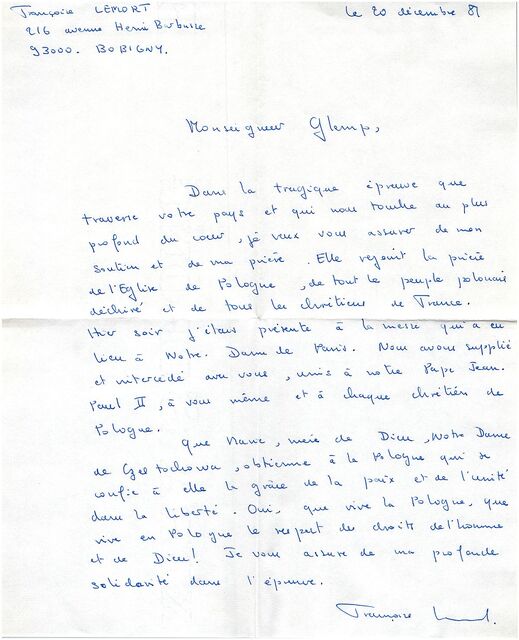 Françoise LEMORT
le 20 décembre 81
216 avenue Henri Barbusse
93000. BOBIGNY.
Monseigneur Glemp,
Dans la tragique épreuve que
traverse votre pays et qui nous touche au plus
profond du cœur, je veux vous assurer de mon
soutien et de ma prière. Elle rejoint la prière
de l'Eglise de Pologne, de tout le peuple polonais
déchiré et de tous les chrétiens de France.
Hier soir j'étais présente à la messe qui a eu
lieu à Notre. Dame de Paris. Nous avons supplié
et intercédé avec vous, unis à notre Pape Jean.
Paul II, à vous même et à chaque chrétien de
Pologne.
Que Marie, mère de Dieu, Notre Dame
de Czestochowa, obtienne à la Pologne qui se
confie à elle la grâce de la paix et de l'unité
dans la liberté. Oui, que vive la Pologne, que
vive en Pologne le respect des droits de l'homme
et de Dieu! Je vous assure de ma profonde
solidarité dans l'épreuve.
Françoise